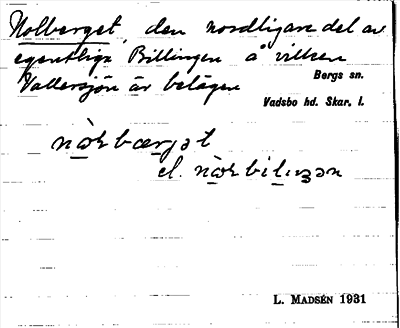 Nolberget, den nordligare del av
egentliga Billingen å vilken
Vallersjön är belägen
Bergs sn.
Vadsbo hd. Skar. l.
nɔ̀rbærjət
el. nɔ̀rbilɩŋən
L. MADSÉN 1931